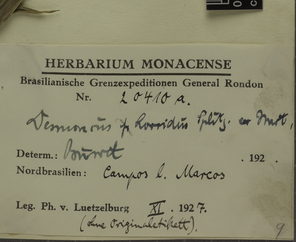 HERBARIUM MONACENSE
Brasilianische Grenzexpeditionen General Rondon
Nr. 20410a.
Desmoncus horridus Splitg. ex Mart.
Determ.: Burret 192 .
Nordbrasilien: Campos b. Marcos
Leg. Ph. v. Luetzelburg XI. 1927.
(ohne Originaletikett).
9